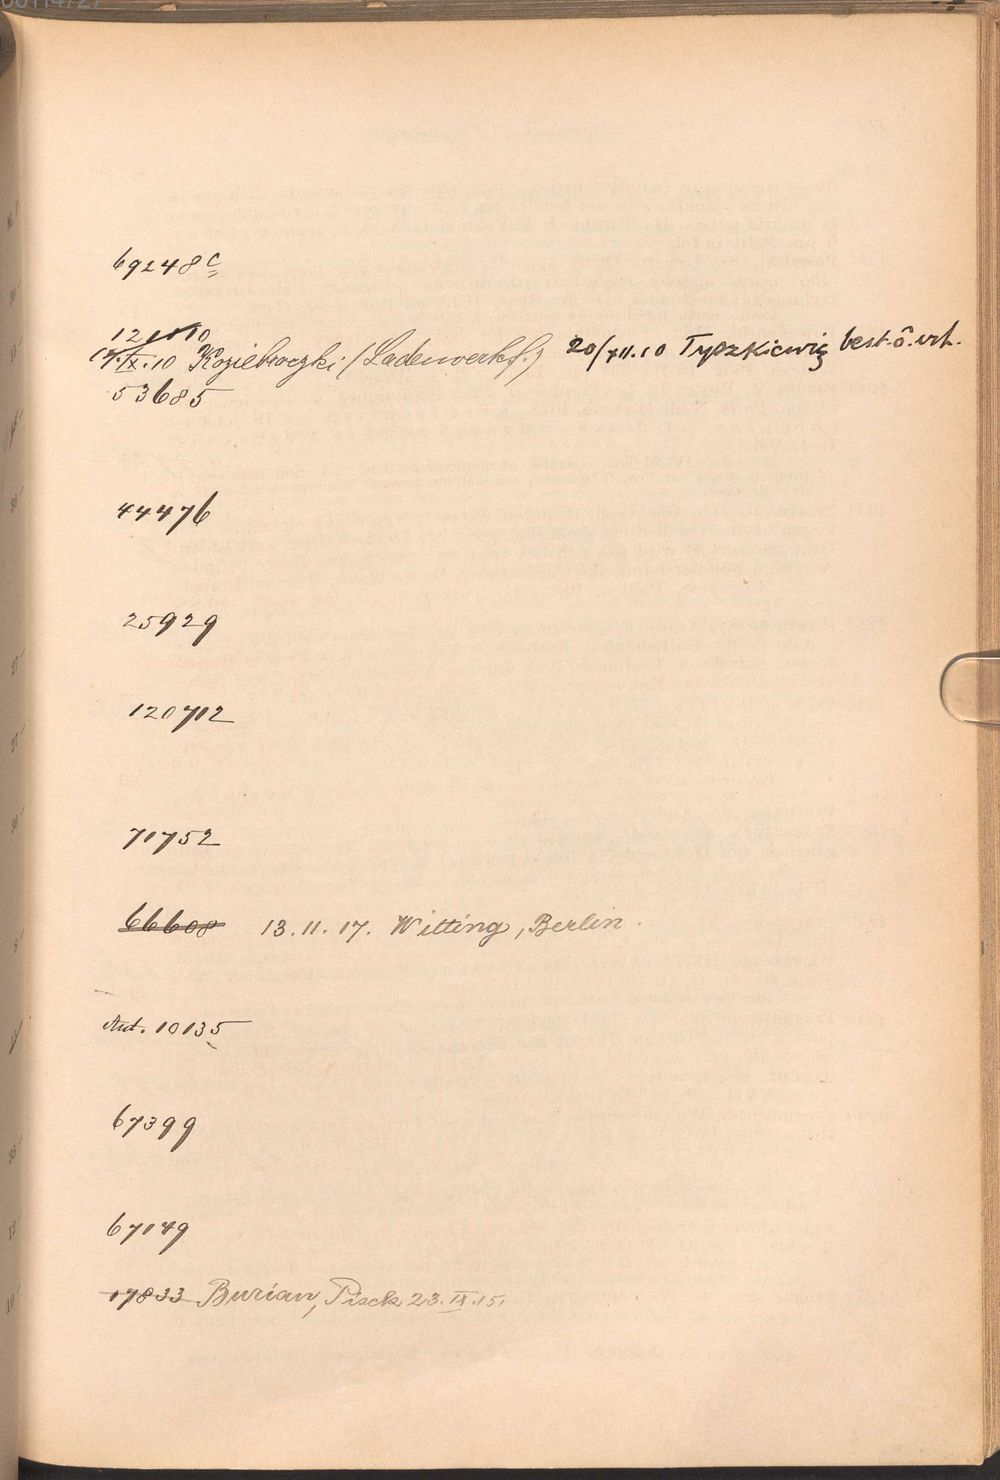 69248c
53685
Koziebrodzki (Ladenverkf.) 20/XII.10 Tyszkiewicz best. ô. vrh.
44476
25929
120712
71752
66608 13.11.17. Witting, Berlin.
Aut. 10135
67399
67149
17833 Burian, Pisek 23.IX.15.